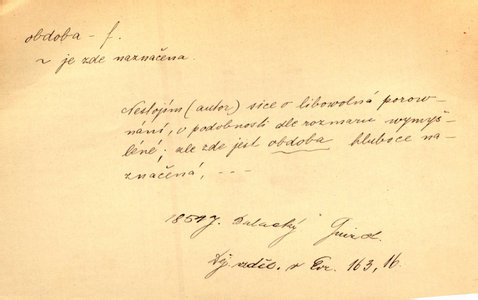 obdoba - f.
~ je zde naznačena.
Nestojím (autor) sice o libowolná porow-
nání, o podobnosti dle rozmaru wymyš-
lené; ale zde jest obdoba hluboce na-
značená, - - -
1851 J. Palacký Guizot.
Děj. vzděl. v Evr. 163, 16.